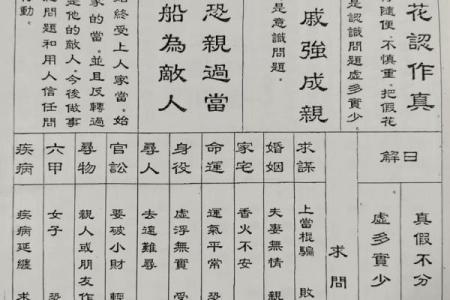 花認作真
隨便，不慎重，把假花
是認識問題虛多實少
戚強成親
是意識問題。
恐親過當
船為敵人
始終受上人家當，始
家的當，並且反轉過
是他的敵人，今後做事
問題和用人信任問
動。
日解
真假不分
虛多實少
求問
求謀
上當棍騙 敗
婚姻
夫妻無情 親
家宅
香火不安
命運
運氣平常 恐
身役
虛浮無實 受
尋人
去遠難尋
官訟
要破小財 輕
尋物
親人或朋友作
六甲
女子 恐
疾病
疾病延纏 求